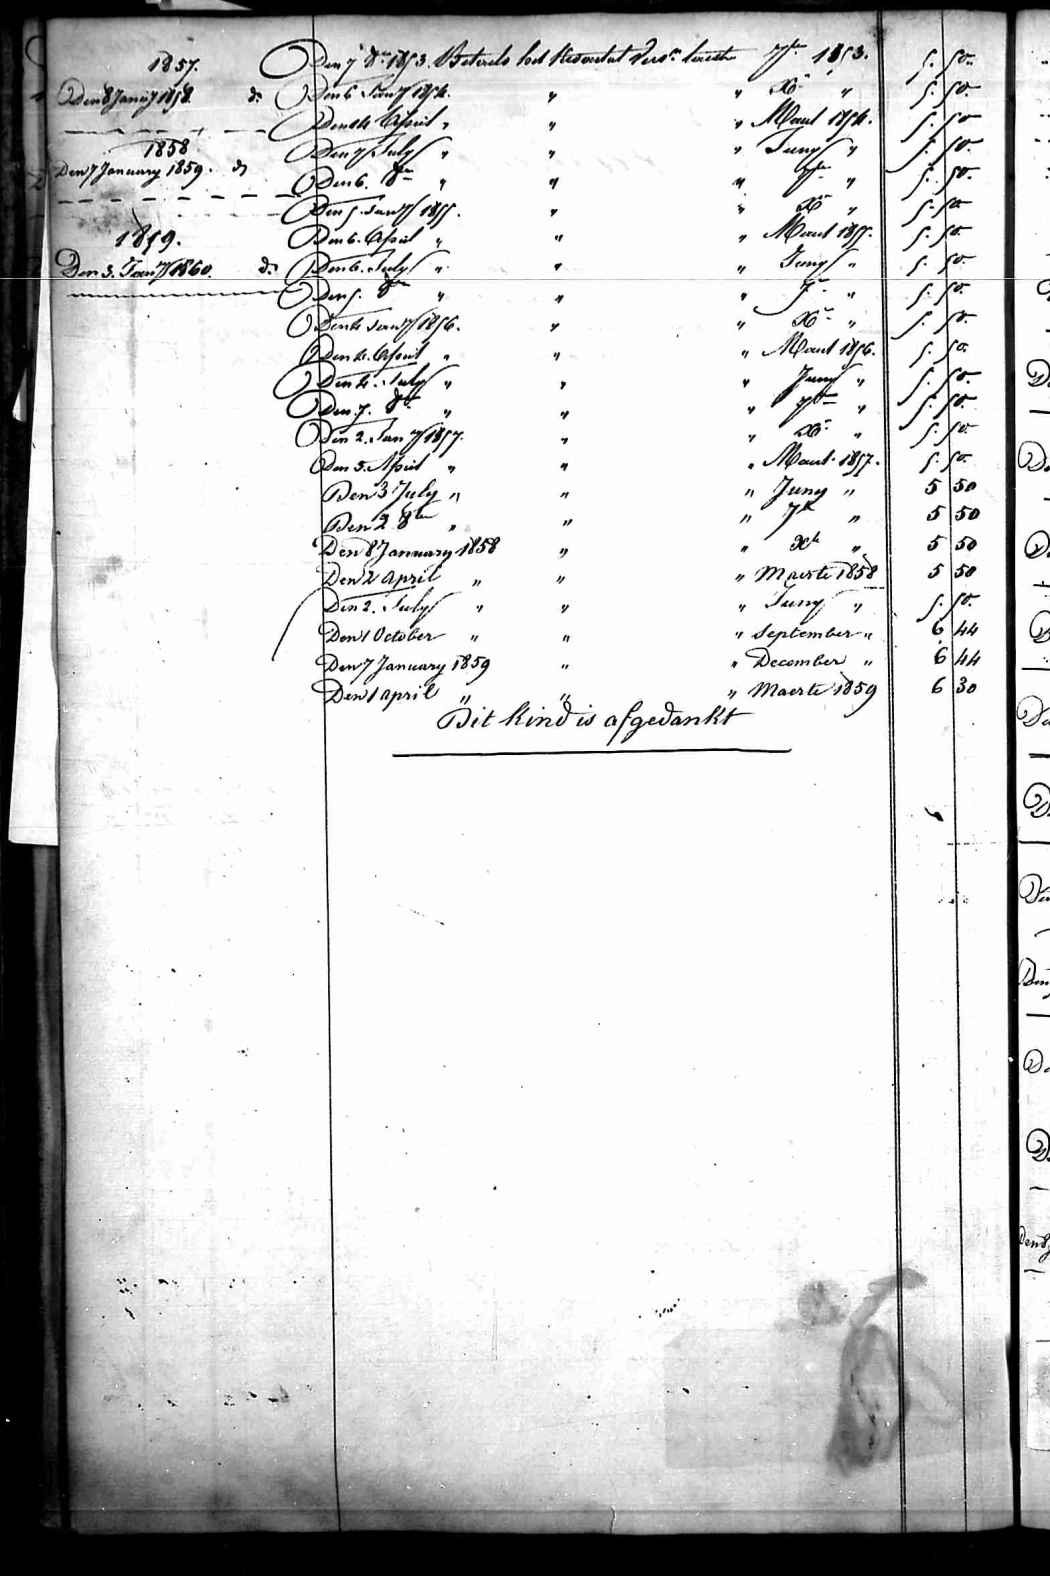 1857.
Den 8 Janu 1858. do
1858
Den 7 January 1859. do
1859.
Den 3. Jan 1860. do
Den 7 8br 1853. Betaeld het 7br 1853. 5. 50.
Den 6 Janu 1854. " " Xbr " 5. 50.
Den 4 April " " " Maert 1854. 5. 50
Den 7 July " " " Juny " 5. 50
Den 6. 8br " " " 7br " 5. 50.
Den 5. Janu 1855. " " Xbr " 5. 50
Den 6. April " " " Maert 1855. 5. 50.
Den 6. July " " " Juny " 5. 50
Den 5. 8br " " " 7br " 5. 50.
Den 4 Janu 1856. " " Xbr " 5. 50.
Den 4. April " " " Maert 1856. 5. 50.
Den 4. July " " " Juny " 5. 50.
Den 7. 8br " " " 7br " 5. 50.
Den 2. Jan 1857. " " Xbr " 5. 50.
Den 5. April " " " Maert 1857. 5. 50.
Den 3 July " " " Juny " 5 50
Den 2 8bre " " " 7br " 5 50
Den 8 January 1858 " " Xbr " 5 50
Den 2 april " " " Maerte 1858 5 50
Den 2. July " " " Juny " 5. 50.
Den 1 October " " " September " 6 44
Den 7 January 1859 " " December " 6 44
Den 1 april " " " Maerte 1859 6 30
Dit kind is afgedankt